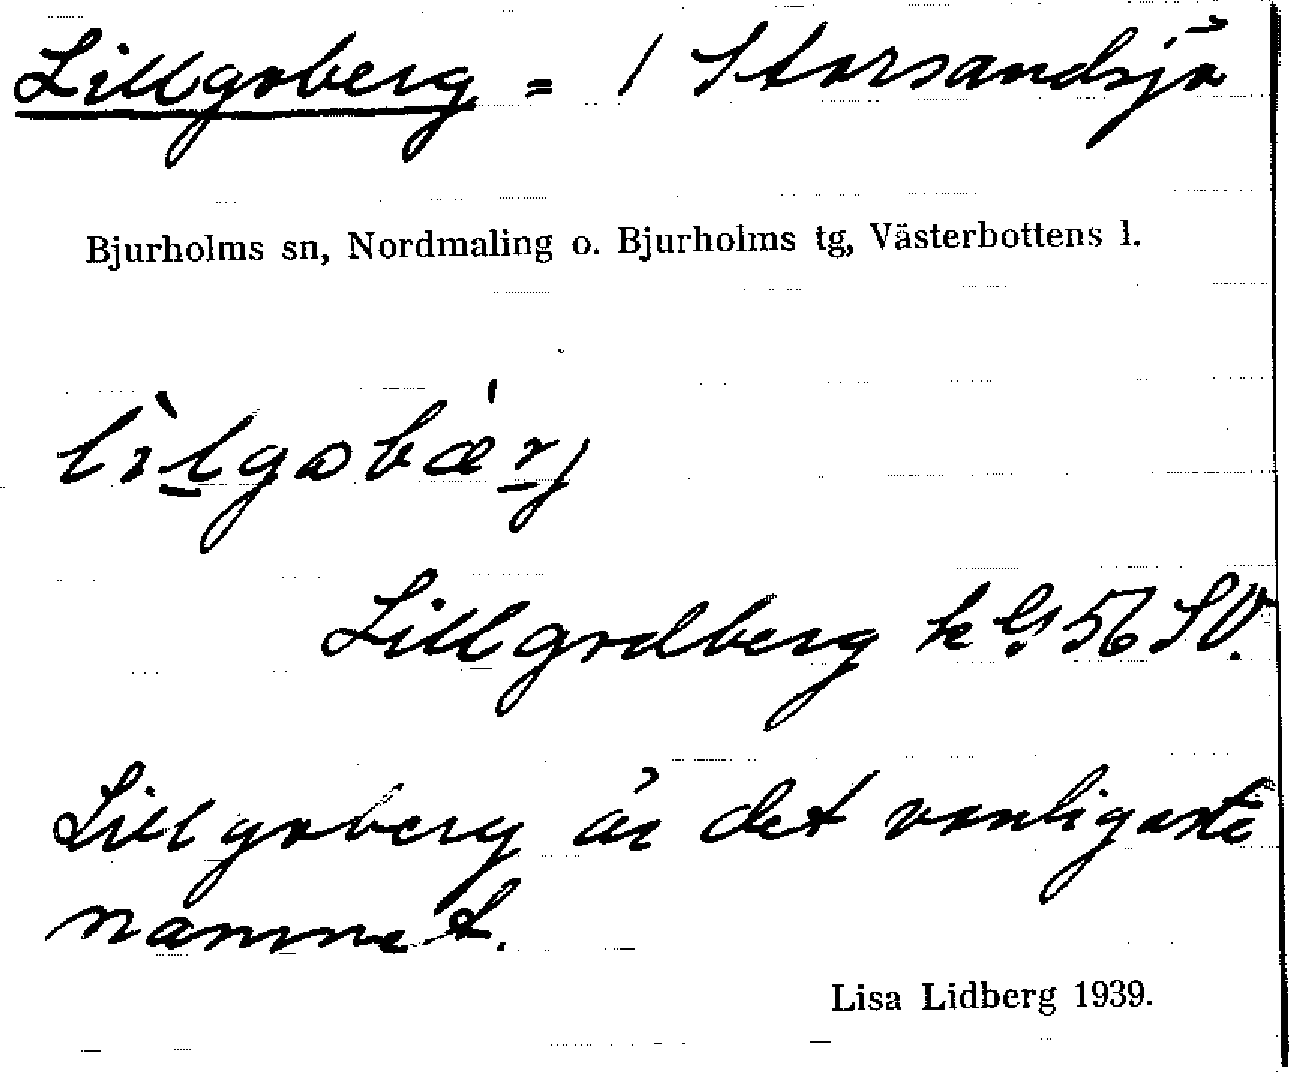 Lillgoberg = / Storsandsjö
Bjurholms sn, Nordmaling o. Bjurholms tg, Västerbottens l.
Lillgodberg k bl 56 SV.
Lillgoberg är det vanligaste
namnet.
Lisa Lidberg 1939.